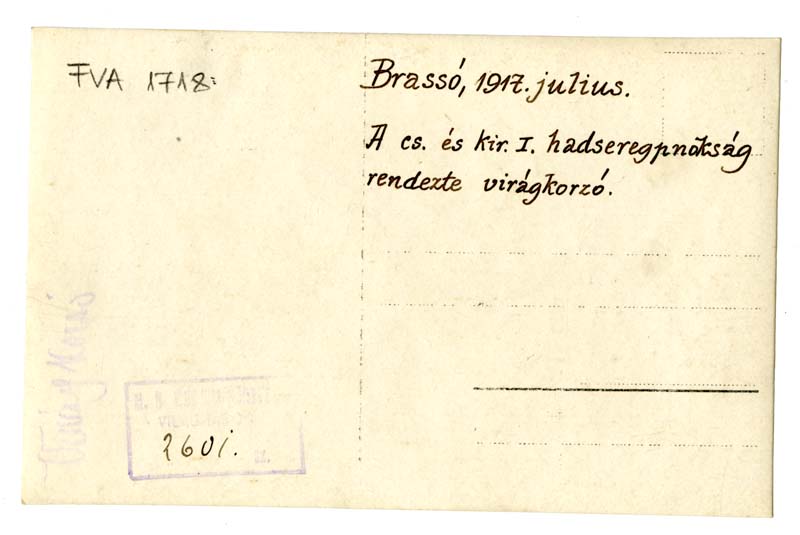 FVA 1718
Brassó, 1917. julius.
A cs. és kir. I. hadseregpnokság
rendezte virágkorzó.
2601.